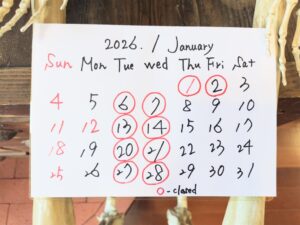 2026. 1 January
Sun Mon Tue wed Thu Fri Sat
1 2 3
4 5 6 7 8 9 10
11 12 13 14 15 16 17
18 19 20 21 22 23 24
25 26 27 28 29 30 31
○-closed